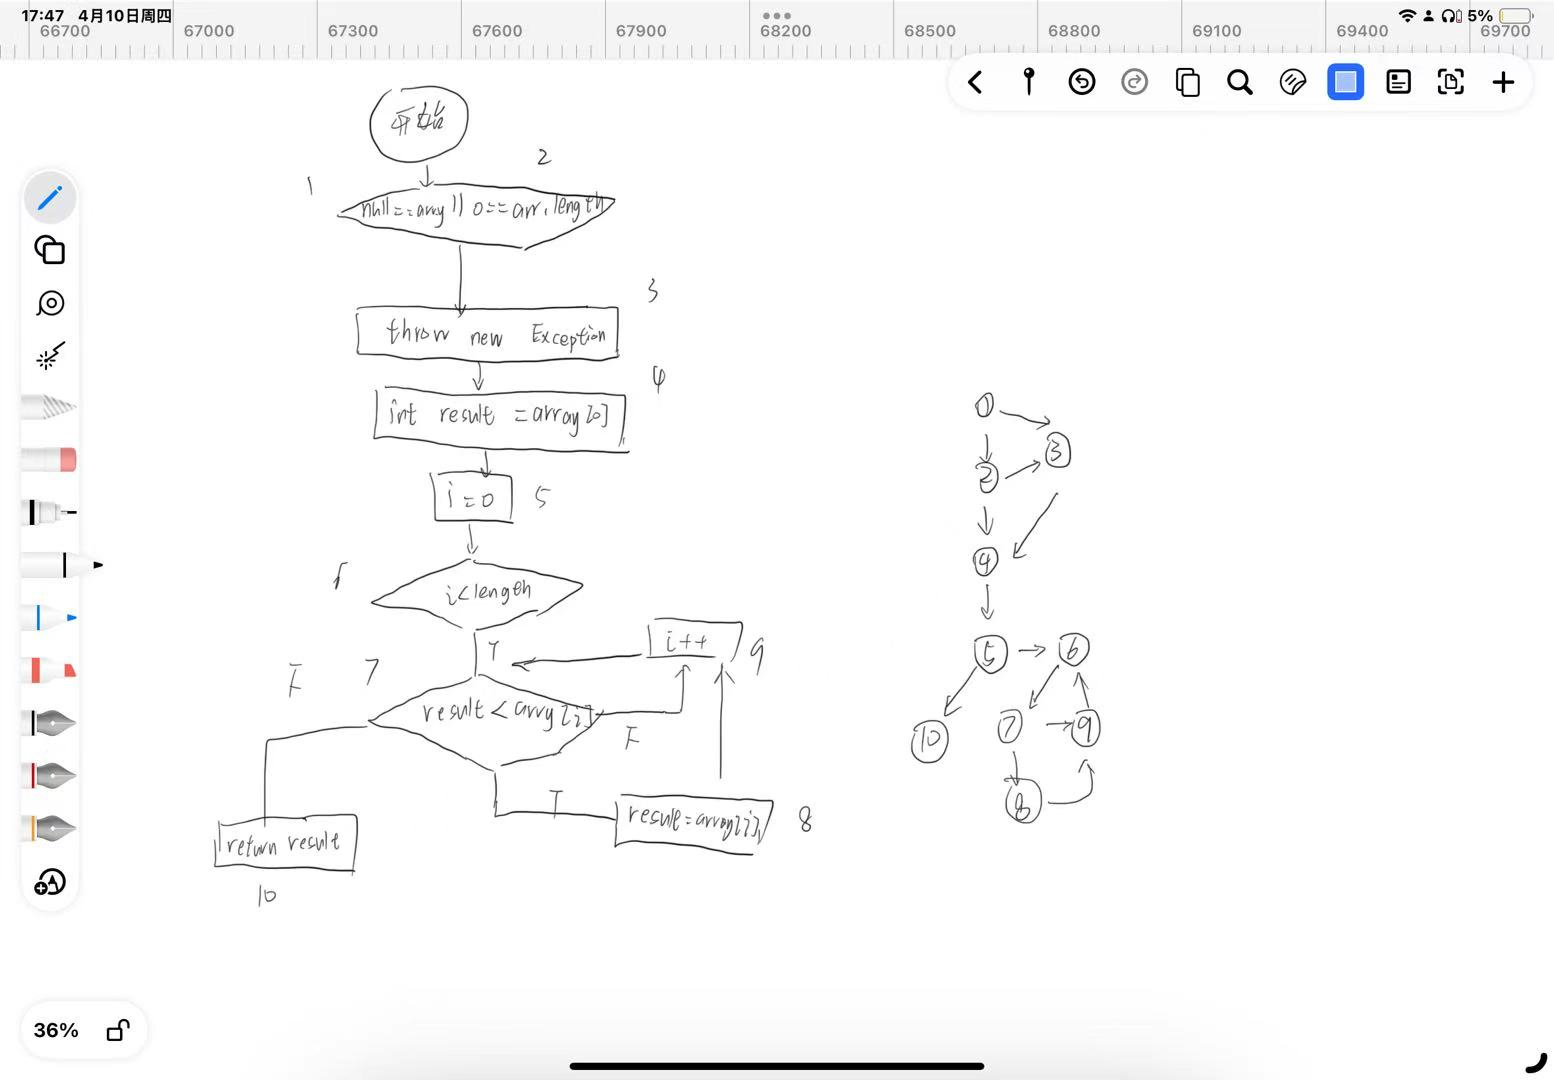 17:47 4月10日周四
5%
66700 67000 67300 67600 67900 68200 68500 68800 69100 69400 69700
开始
1
2
null==arry || 0==arr.length
3
throw new Exception
4
int result =array[0]
i=0
5
i<length
T
i++
9
F
7
result < arry[i]
F
T
result=array[i]
8
return result
10
3
2
4
5
6
10
7
9
8
36%